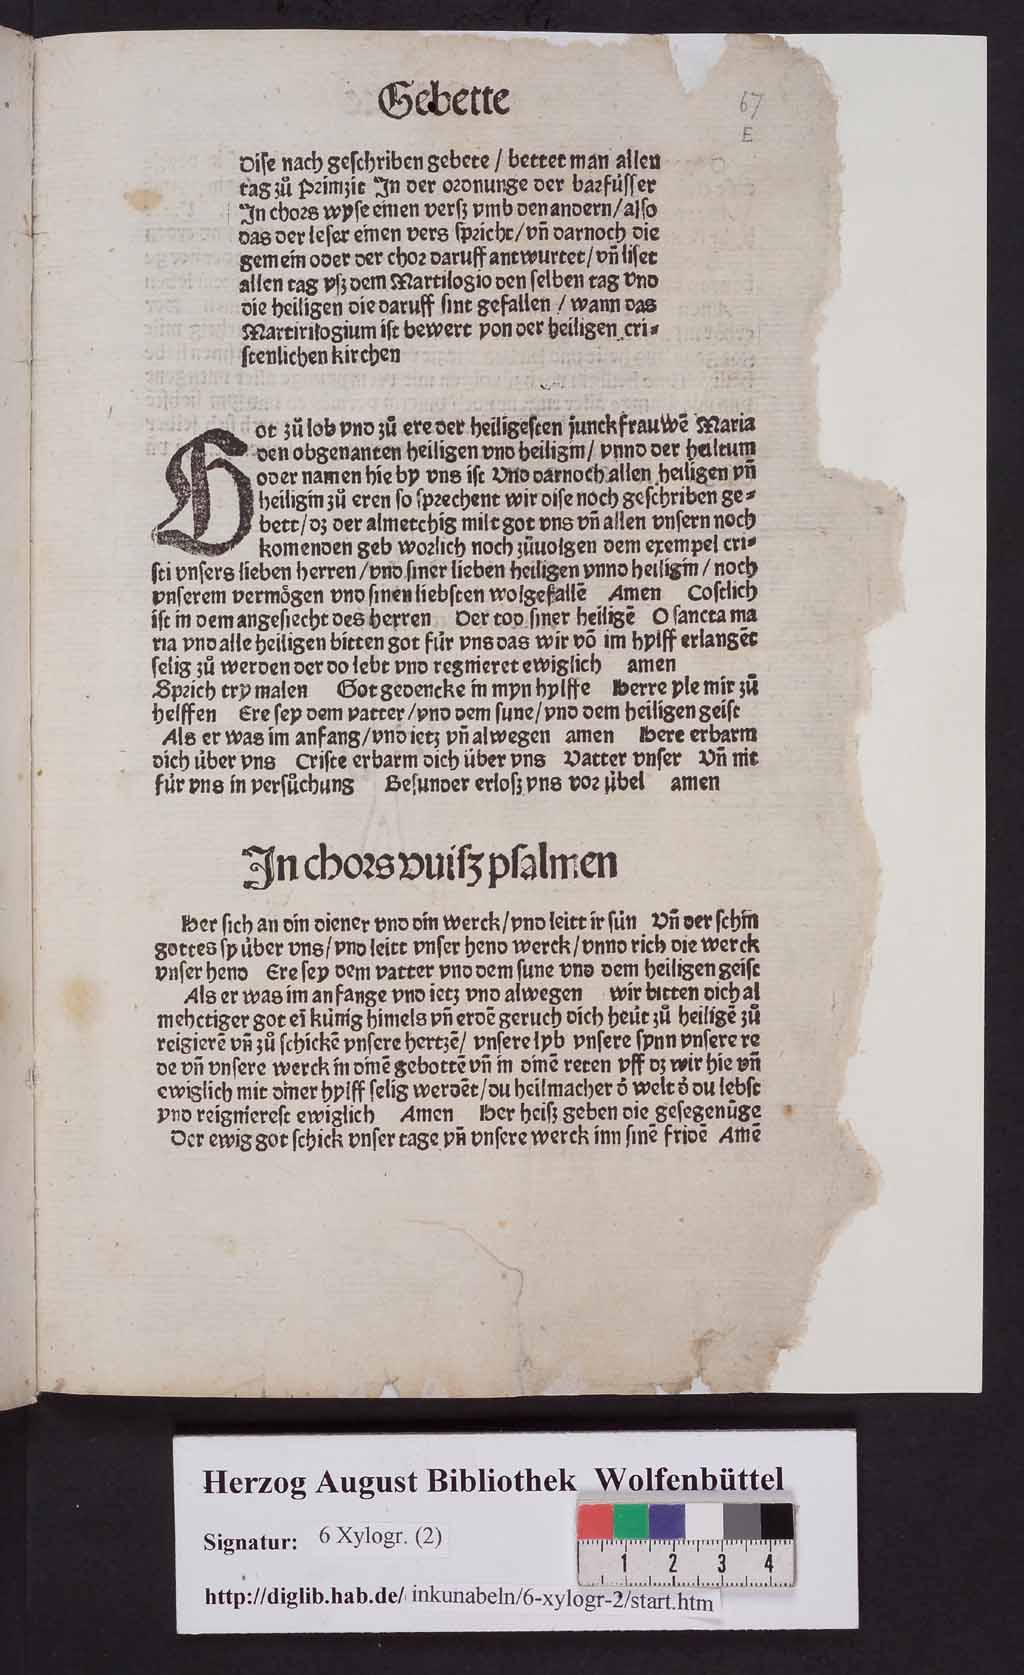 Gebette
67
E
Dise nach geschriben gebete / bettet man allen
tag zů Primzit In der ordnunge der barfůsser
In chors wyse einen versz vmb den andern / also
das der leser einen vers spricht / vñ darnoch die
gemein oder der chor daruff antwurtet / vñ liset
allen tag vsz dem Martilogio den selben tag vnd
die heiligen die daruff sint gefallen / wann das
Martirilogium ist bewert von der heiligen cri⸗
stenlichen kirchen
Got zů lob vnd zů ere der heiligesten junckfrauwē Maria
den obgenanten heiligen vnd heiligin / vnnd der heiltum
oder namen hie by vns ist Vnd darnoch allen heiligen vñ
heiligin zů eren so sprechent wir dise noch geschriben ge⸗
bett / dz der almetchig milt got vns vñ allen vnsern noch
komenden geb worlich noch zůuolgen dem exempel cri⸗
sti vnsers lieben herren / vnd siner lieben heiligen vnnd heiligin / noch
vnserem vermögen vnd sinen liebsten wolgefallē Amen Costlich
ist in dem angesiecht des herren Der tod siner heiligē O sancta ma
ria vnd alle heiligen bitten got für vns das wir vō im hylff erlangēt
selig zů werden der do lebt vnd regnieret ewiglich amen
Sprich try malen Got gedencke in myn hylffe Herre yle mir zů
helffen Ere sey dem vatter / vnd dem sune / vnd dem heiligen geist
Als er was im anfang / vnd ietz vñ alwegen amen Here erbarm
dich über vns Criste erbarm dich über vns Vatter vnser Vñ nit
für vns in versůchung Besunder erlosz vns vor übel amen
In chors vuisz psalmen
Her sich an din diener vnd din werck / vnd leitt ir sün Vñ der schin
gottes sy über vns / vnd leitt vnser hend werck / vnnd rich die werck
vnser hend Ere sey dem vatter vnd dem sune vnd dem heiligen geist
Als er was im anfange vnd ietz vnd alwegen wir bitten dich al
mehctiger got eī künig himels vñ erdē geruch dich heüt zů heiligē zů
reigierē vñ zů schickē vnsere hertzē / vnsere lyb vnsere synn vnsere re
de vñ vnsere werck in dinē gebottē vñ in dinē reten vff dz wir hie vñ
ewiglich mit diner hylff selig werdēt / du heilmacher ď welt ď du lebst
vnd reignierest ewiglich Amen Her heisz geben die gesegenüge
Der ewig got schick vnser tage vñ vnsere werck inn sinē fridē Amē
Herzog August Bibliothek Wolfenbüttel
Signatur: 6 Xylogr. (2)
1 2 3 4
http://diglib.hab.de/ inkunabeln/6-xylogr-2/start.htm